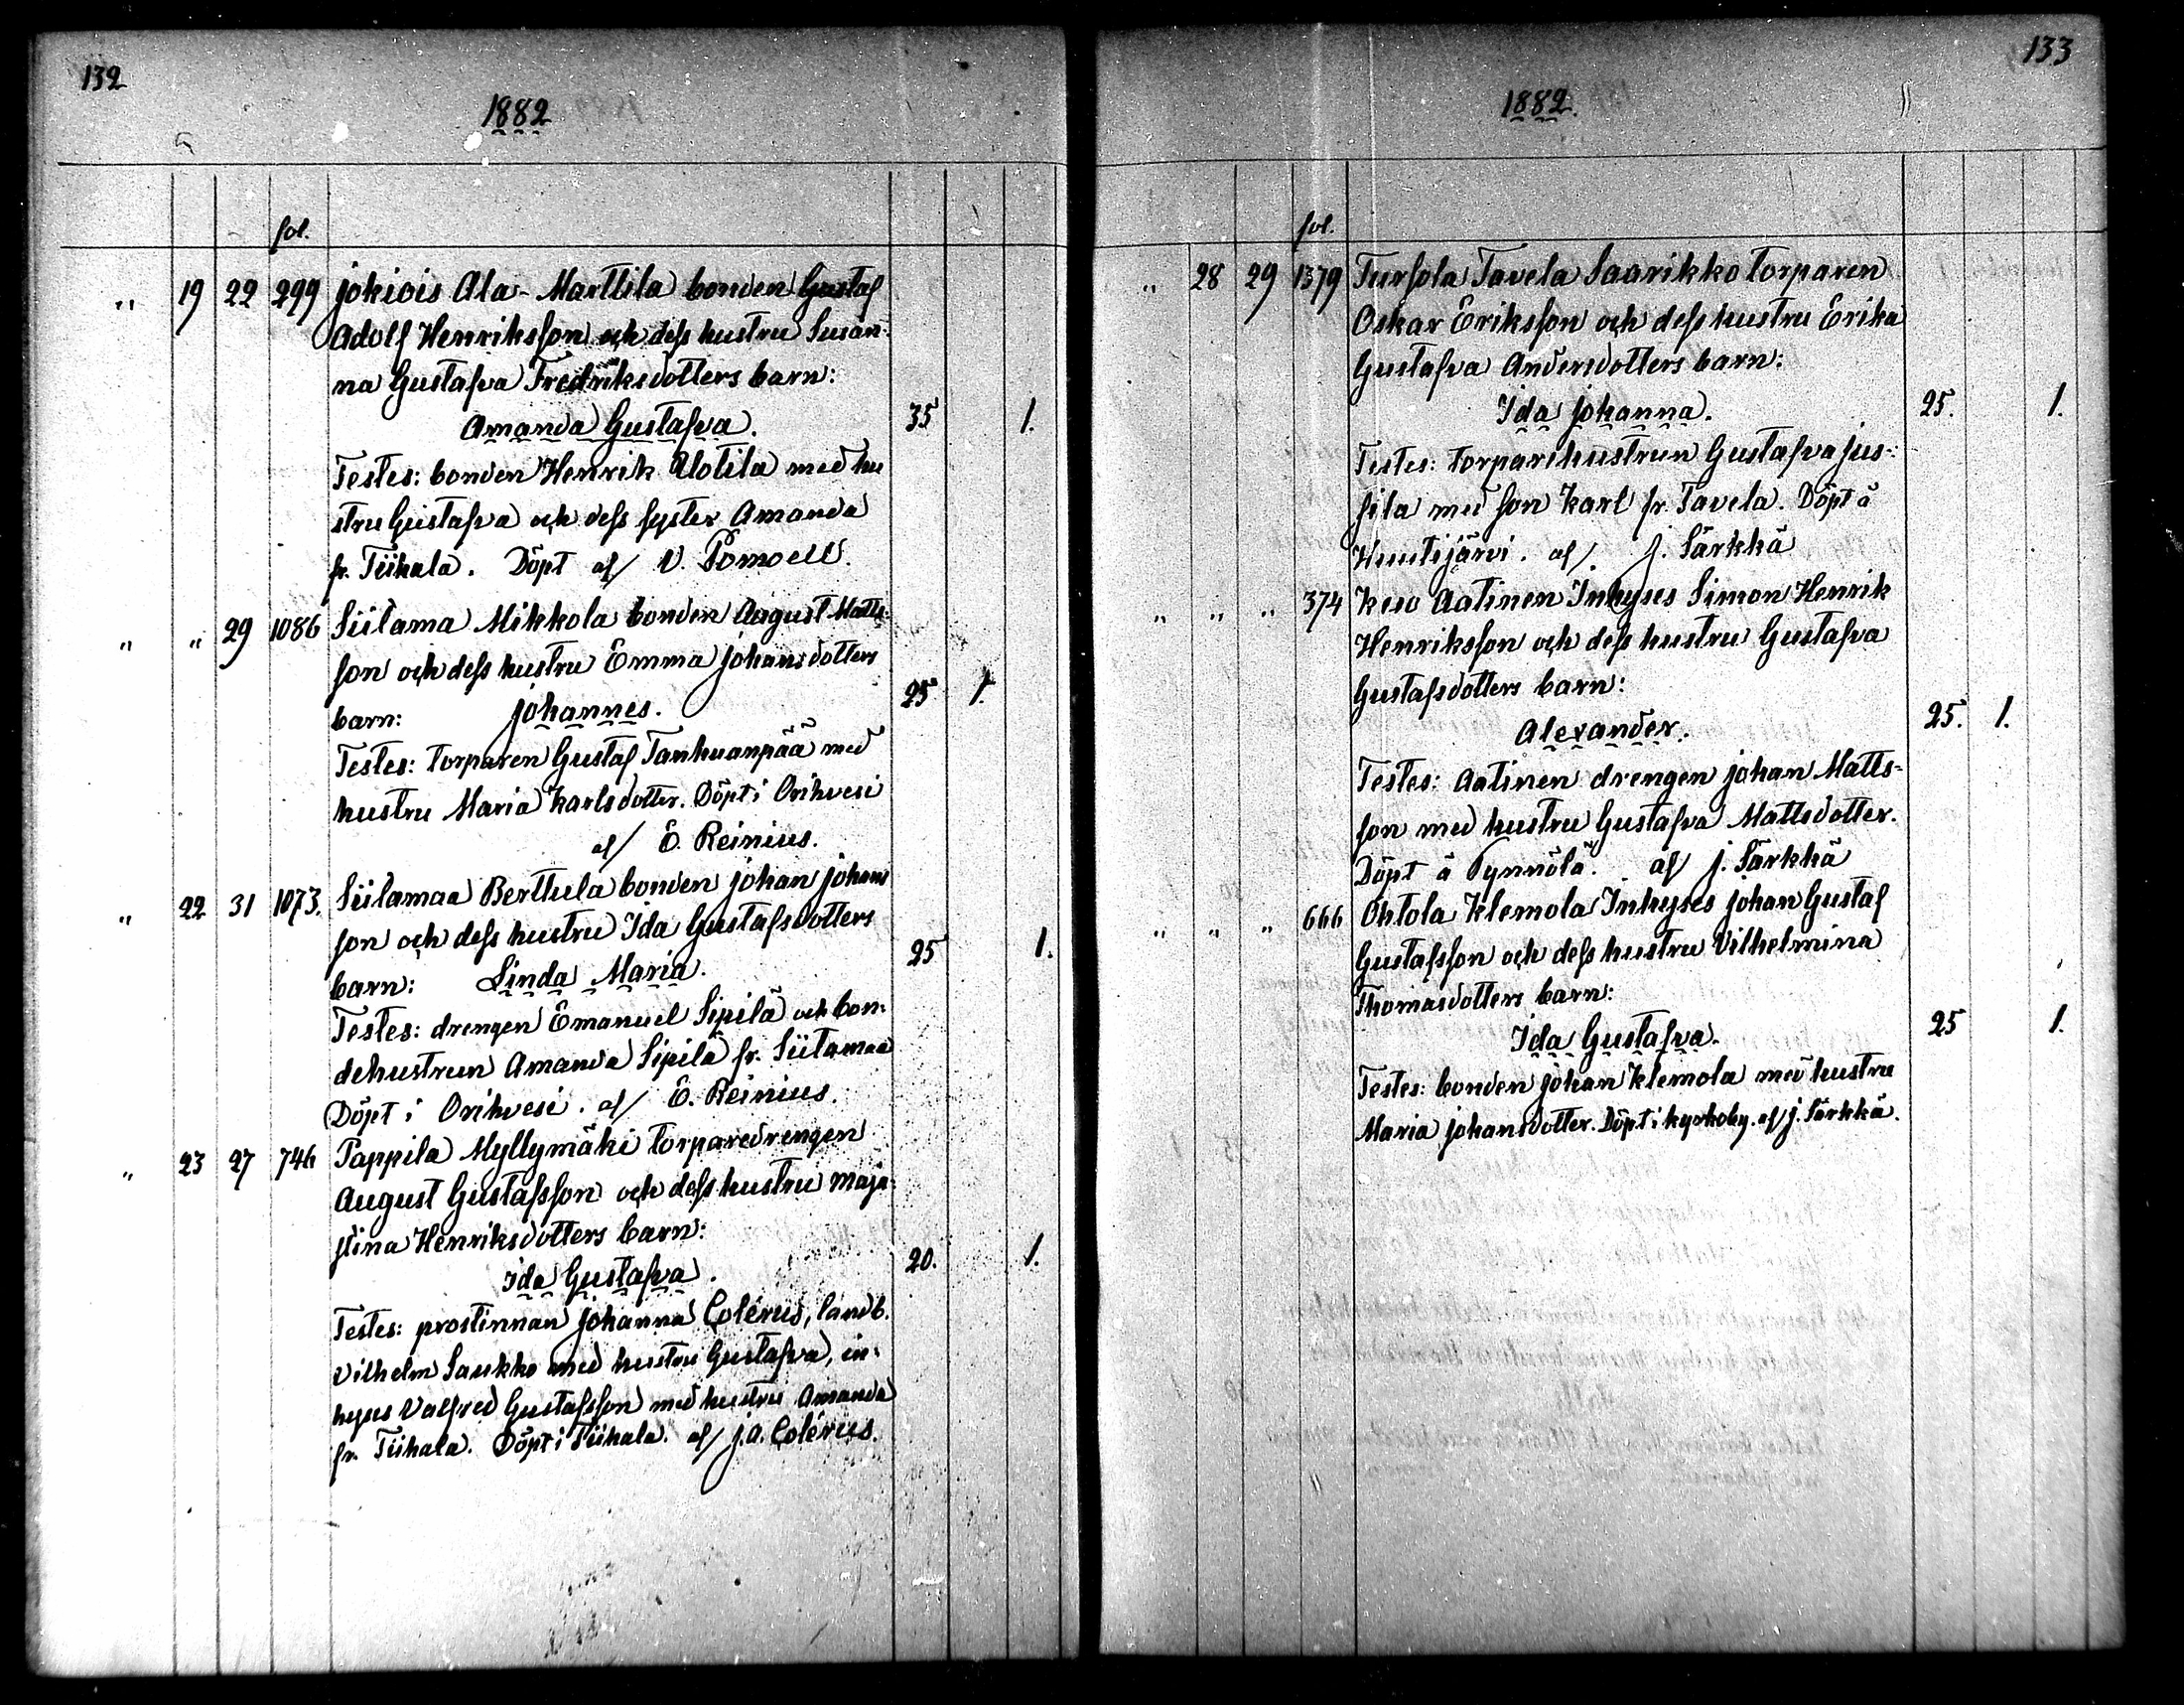 132
1882
fol.
" 19 22 299 Jokiois Ala-Marttila bonden Gustaf
Adolf Henriksson och dess hustru Susan-
na Gustafva Fredriksdotters barn:
Amanda Gustafva. 35 1.
Testes: bonden Henrik Alotila med hu
stru Gustafva och dess syster Amanda
fr. Tiihala. Döpt af/ V. Pomoell.
" " 29 1086 Siitama Mikkola bonden August Matts-
son och dess hustru Emma Johansdotters
barn: Johannes. 25 1.
Testes: torparen Gustaf Tanhuanpää med
hustru Maria Karlsdotter. Döpt i Orihvesi
af/ E. Reinius.
" 22 31 1073. Siitamaa Berttula bonden Johan Johans
son och dess hustru Ida Gustafsdotters
barn: Linda Maria. 25 1.
Testes: drengen Emanuel Sipilä och bon-
dehustrun Amanda Sipilä fr. Siitamaa
Döpt i Orihvesi. af/ E. Reinius.
" 23 27 746 Pappila Myllymäki torparedrengen
August Gustafsson och dess hustru Maja
stina Henriksdotters barn:
Ida Gustafva. 20. 1.
Testes: prostinnan Johanna Colérus, landb.
Vilhelm Saukko med hustru Gustafva, in-
hyses Valfred Gustafsson med hustru Amanda
fr. Tiihala. Döpt i Tiihala. af/ J.A. Colérus.
133
1882.
fol.
" 28 29 1379 Tursola Tavela Saarikko torparen
Oskar Eriksson och dess hustru Erika
Gustafva Andersdotters barn:
Ida Johanna. 25. 1.
Testes: torparehustrun Gustafva Jus-
sila med son Karl fr. Tavela. Döpt å
Huutijärvi. af/. J. Särkkä
" " " 374 Keso Aatinen Inhyses Simon Henrik
Henriksson och dess hustru Gustafva
Gustafsdotters barn:
Alexander. 25. 1.
Testes: Aatinen drengen Johan Matts-
son med hustru Gustafva Mattsdotter.
Döpt å Tynnölä. af/ J. Särkkä
" " " 666 Ohtola Klemola Inhyses Johan Gustaf
Gustafsson och dess hustru Vilhelmina
Thomasdotters barn:
Ida Gustafva. 25 1.
Testes: bonden Johan Klemola med hustru
Maria Johansdotter. Döpt i kyrkoby. af/ J. Särkkä.